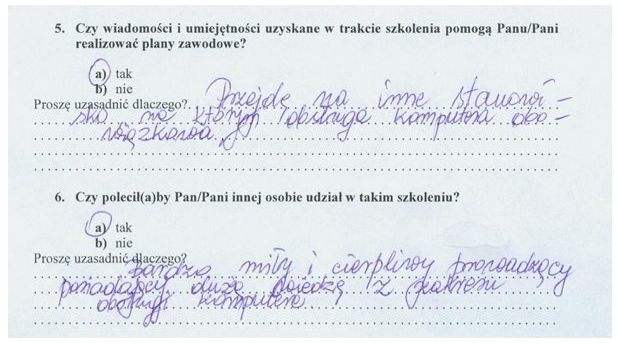 5. Czy wiadomości i umiejętności uzyskane w trakcie szkolenia pomogą Panu/Pani
realizować plany zawodowe?
a) tak
b) nie
Proszę uzasadnić dlaczego? Przejdę na inne stanowi-
sko na którym obsługa komputera obo-
wiązkowa
6. Czy polecił(a)by Pan/Pani innej osobie udział w takim szkoleniu?
a) tak
b) nie
Proszę uzasadnić dlaczego?
Bardzo miły i cierpliwy prowadzący
posiadający dużą wiedzę z zakresu
obsługi komputera